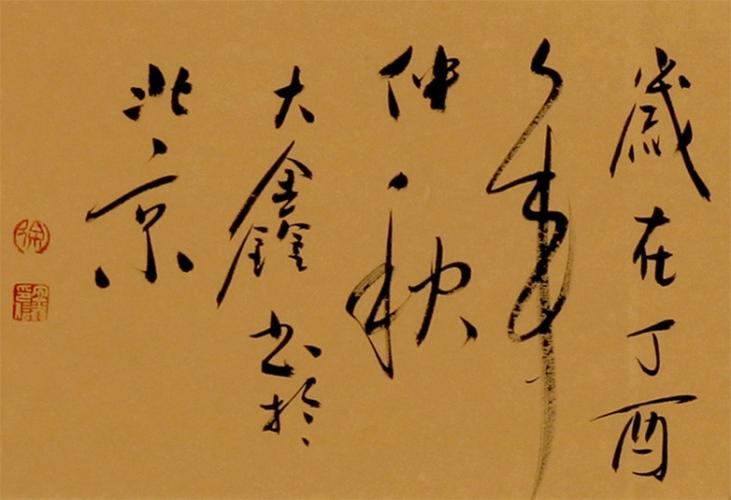 歲在丁酉
年
仲秋
大鑫书於
北京